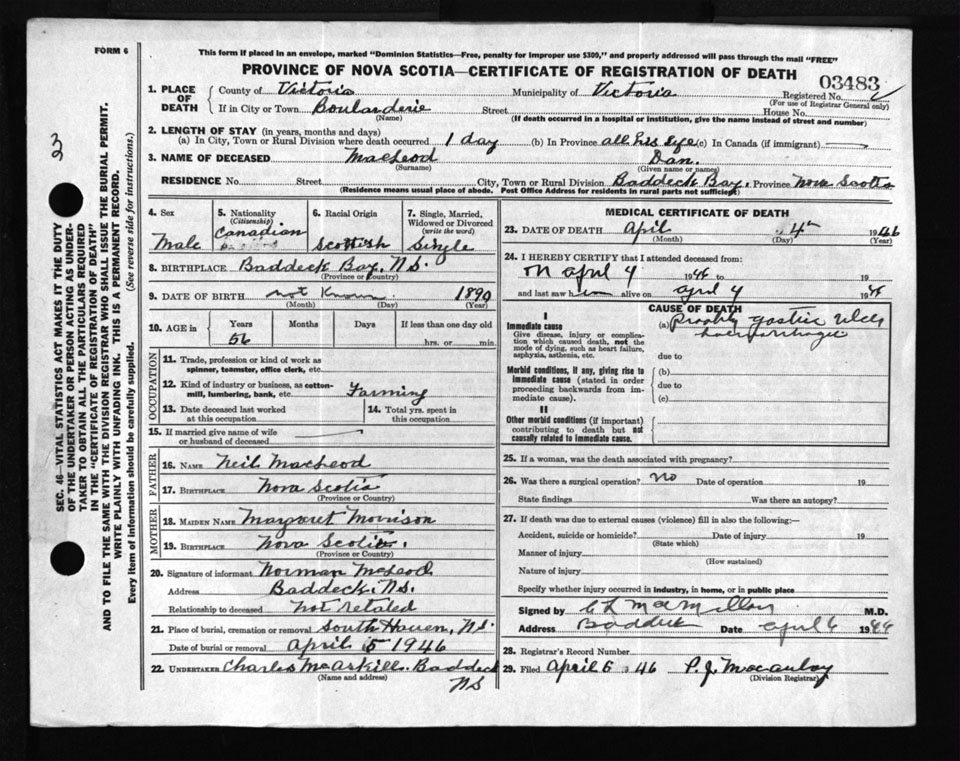 FORM 6
This form if placed in an envelope, marked "Dominion Statistics—Free, penalty for improper use $300," and properly addressed will pass through the mail "FREE"
PROVINCE OF NOVA SCOTIA—CERTIFICATE OF REGISTRATION OF DEATH
03483
1. PLACE OF DEATH County of Victoria Municipality of Victoria Registered No.
(For use of Registrar General only)
If in City or Town Boularderie Street House No.
(Name) (If death occurred in a hospital or institution, give the name instead of street and number)
2. LENGTH OF STAY (in years, months and days)
(a) In City, Town or Rural Division where death occurred 1 day (b) In Province all his life (c) In Canada (if immigrant)
3. NAME OF DECEASED MacLeod Dan.
(Surname) (Given name or names)
RESIDENCE No. Street City, Town or Rural Division Baddeck Bay, Province Nova Scotia
(Residence means usual place of abode. Post Office Address for residents in rural parts not sufficient)
4. Sex Male
5. Nationality (Citizenship) Canadian
6. Racial Origin Scottish
7. Single, Married, Widowed or Divorced (write the word) Single
8. BIRTHPLACE Baddeck Bay, N.S.
(Province or Country)
9. DATE OF BIRTH not Known 1890
(Month) (Day) (Year)
10. AGE in Years Months Days If less than one day old
56 hrs. or min.
OCCUPATION
11. Trade, profession or kind of work as spinner, teamster, office clerk, etc.
12. Kind of industry or business, as cotton-mill, lumbering, bank, etc. Farming
13. Date deceased last worked at this occupation
14. Total yrs. spent in this occupation
15. If married give name of wife or husband of deceased
FATHER
16. NAME Neil MacLeod
17. BIRTHPLACE Nova Scotia
(Province or Country)
MOTHER
18. MAIDEN NAME Margaret Morrison
19. BIRTHPLACE Nova Scotia.
(Province or Country)
20. Signature of informant Norman McLeod
Address Baddeck. N.S.
Relationship to deceased not retaled
21. Place of burial, cremation or removal South Haven, N.S.
Date of burial or removal April 5 1946
22. UNDERTAKER Charles McAskill. Baddeck
(Name and address) NS
MEDICAL CERTIFICATE OF DEATH
23. DATE OF DEATH April 4th 1946
(Month) (Day) (Year)
24. I HEREBY CERTIFY that I attended deceased from:
on April 4 1946 19
and last saw him alive on april 4 194
CAUSE OF DEATH
I
Immediate cause (a) Probably gastric ulcer
Give disease, injury or complication which caused death, not the mode of dying, such as heart failure, asphyxia, asthenia, etc.
due to
Morbid conditions, if any, giving rise to immediate cause (stated in order proceeding backwards from immediate cause).
(b)
due to
(c)
II
Other morbid conditions (if important) contributing to death but not causally related to immediate cause.
25. If a woman, was the death associated with pregnancy?
26. Was there a surgical operation? no Date of operation 19
State findings Was there an autopsy?
27. If death was due to external causes (violence) fill in also the following:—
Accident, suicide or homicide? Date of injury 19
(State which)
Manner of injury
(How sustained)
Nature of injury
Specify whether injury occurred in industry, in home, or in public place
Signed by C L MacMillan M.D.
Address Baddeck Date april 6 19
28. Registrar's Record Number
29. Filed April 6 1946 P. J. Macaulay
(Division Registrar)
3
SEC. 46—VITAL STATISTICS ACT MAKES IT THE DUTY
OF THE UNDERTAKER OR PERSON ACTING AS UNDER-
TAKER TO OBTAIN ALL THE PARTICULARS REQUIRED
IN THE "CERTIFICATE OF REGISTRATION OF DEATH"
AND TO FILE THE SAME WITH THE DIVISION REGISTRAR WHO SHALL ISSUE THE BURIAL PERMIT.
WRITE PLAINLY WITH UNFADING INK. THIS IS A PERMANENT RECORD.
Every item of information should be carefully supplied. (See reverse side for instructions.)